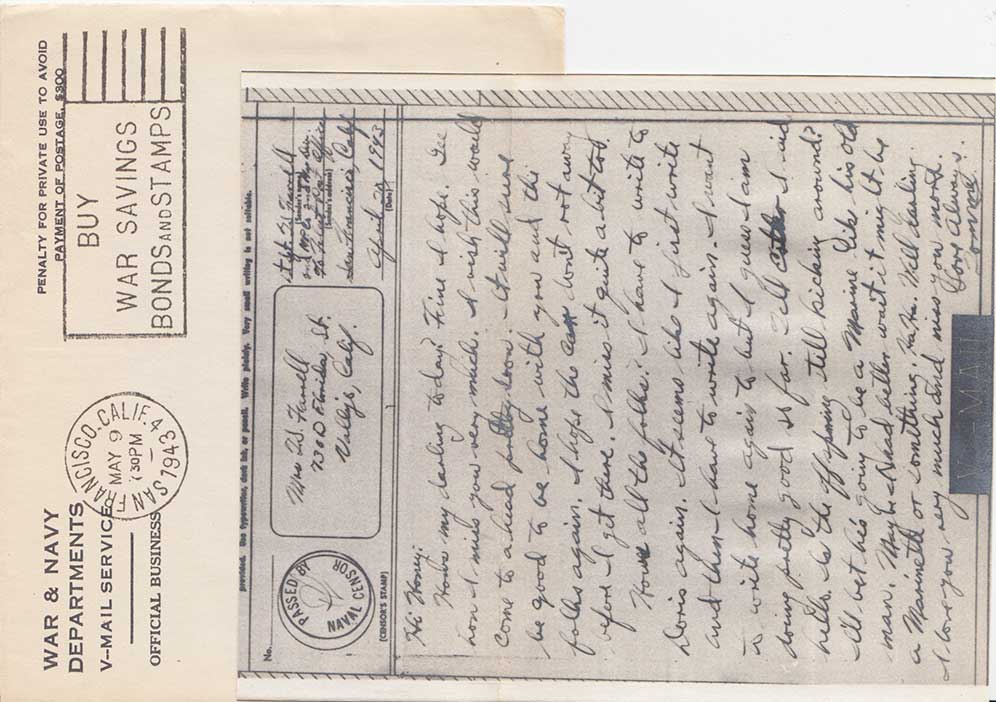 WAR & NAVY
DEPARTMENTS
V-MAIL SERVICE
OFFICIAL BUSINESS
PENALTY FOR PRIVATE USE TO AVOID
PAYMENT OF POSTAGE, $300
SAN FRANCISCO, CALIF.
MAY 9
30 PM
1943
BUY
WAR SAVINGS
BONDS AND STAMPS
provided. Use typewriter, dark ink, or pencil. Write plainly. Very small writing is not suitable.
No.
PASSED BY
NAVAL CENSOR
(CENSOR'S STAMP)
Mrs
730 D Florida St.
Vallejo, Calif.
(Sender's name)
Post Office
(Sender's address)
San Francisco Calif
April 29 1943
(Date)
Hi Honey:
Hows my darling today? Fine I hope. Gee
hon I miss you very much. I wish this would
come to a head pretty soon. It will sure
be good to be home with you and the
folks again. I hope the car dont rot away
before I get there. I miss it quite a bit too.
How all the folks? I have to write to
Doris again. It seems like I first write
and then I have to write again. I want
to write home again to but I guess I am
doing pretty good so far. Well I will
hello. Is the offspring still kicking around?
Ill bet he's going to be a Marine like his old
man. Maybe I had better wait it might be
a Marinette or something. Ha Ha. Well darling
I love you very much and miss you more.
Love Always.
V-MAIL